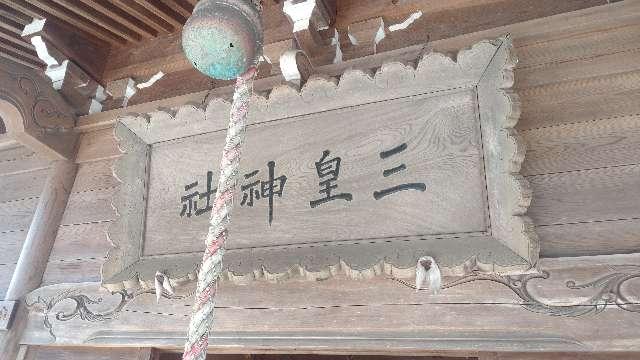 三皇神社